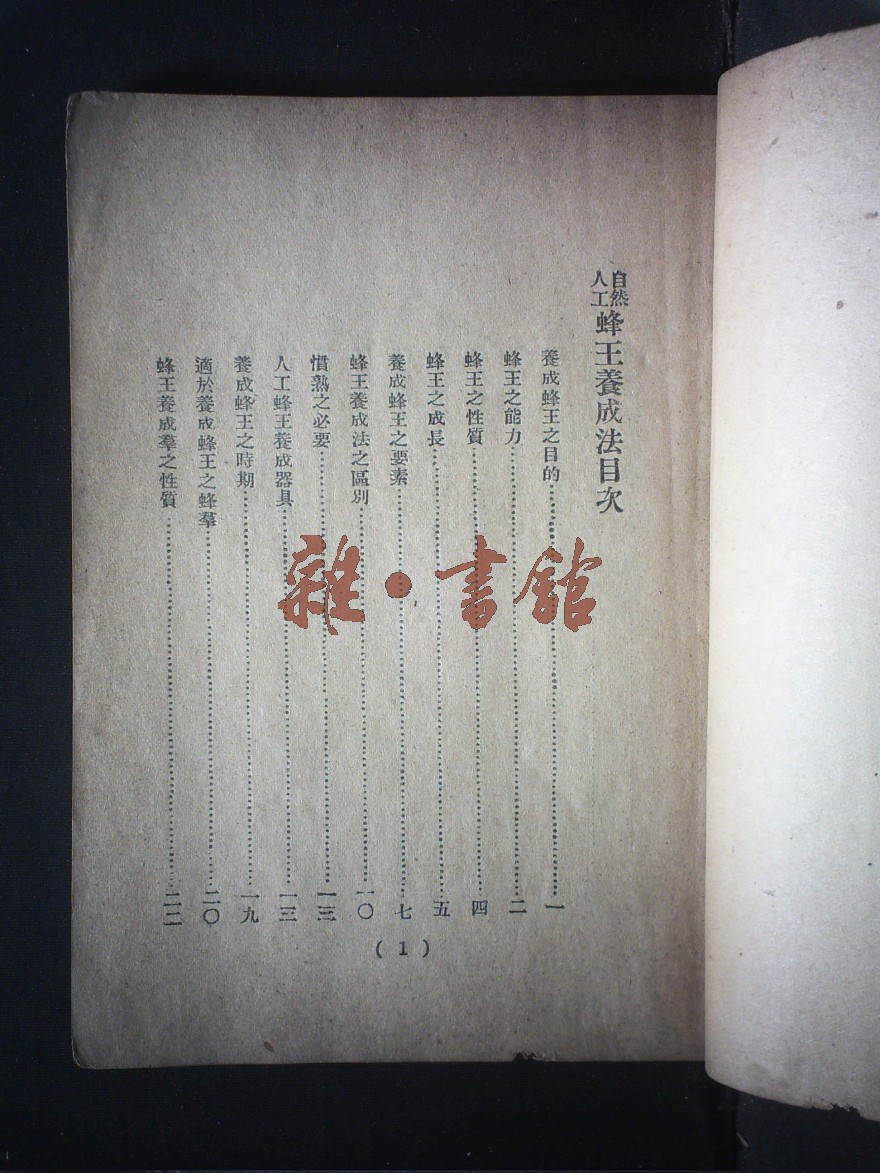 自然人工蜂王養成法目次
養成蜂王之目的……一
蜂王之能力……二
蜂王之性質……四
蜂王之成長……五
養成蜂王之要素……七
蜂王養成法之區別……一〇
慣熟之必要……一三
人工蜂王養成器具……一三
養成蜂王之時期……一九
適於養成蜂王之蜂羣……二〇
蜂王養成羣之性質……二二
(1)
雜·書館